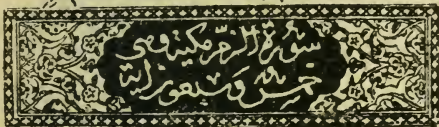 سورة الزمر مكية وهي
خمس وسبعون آية